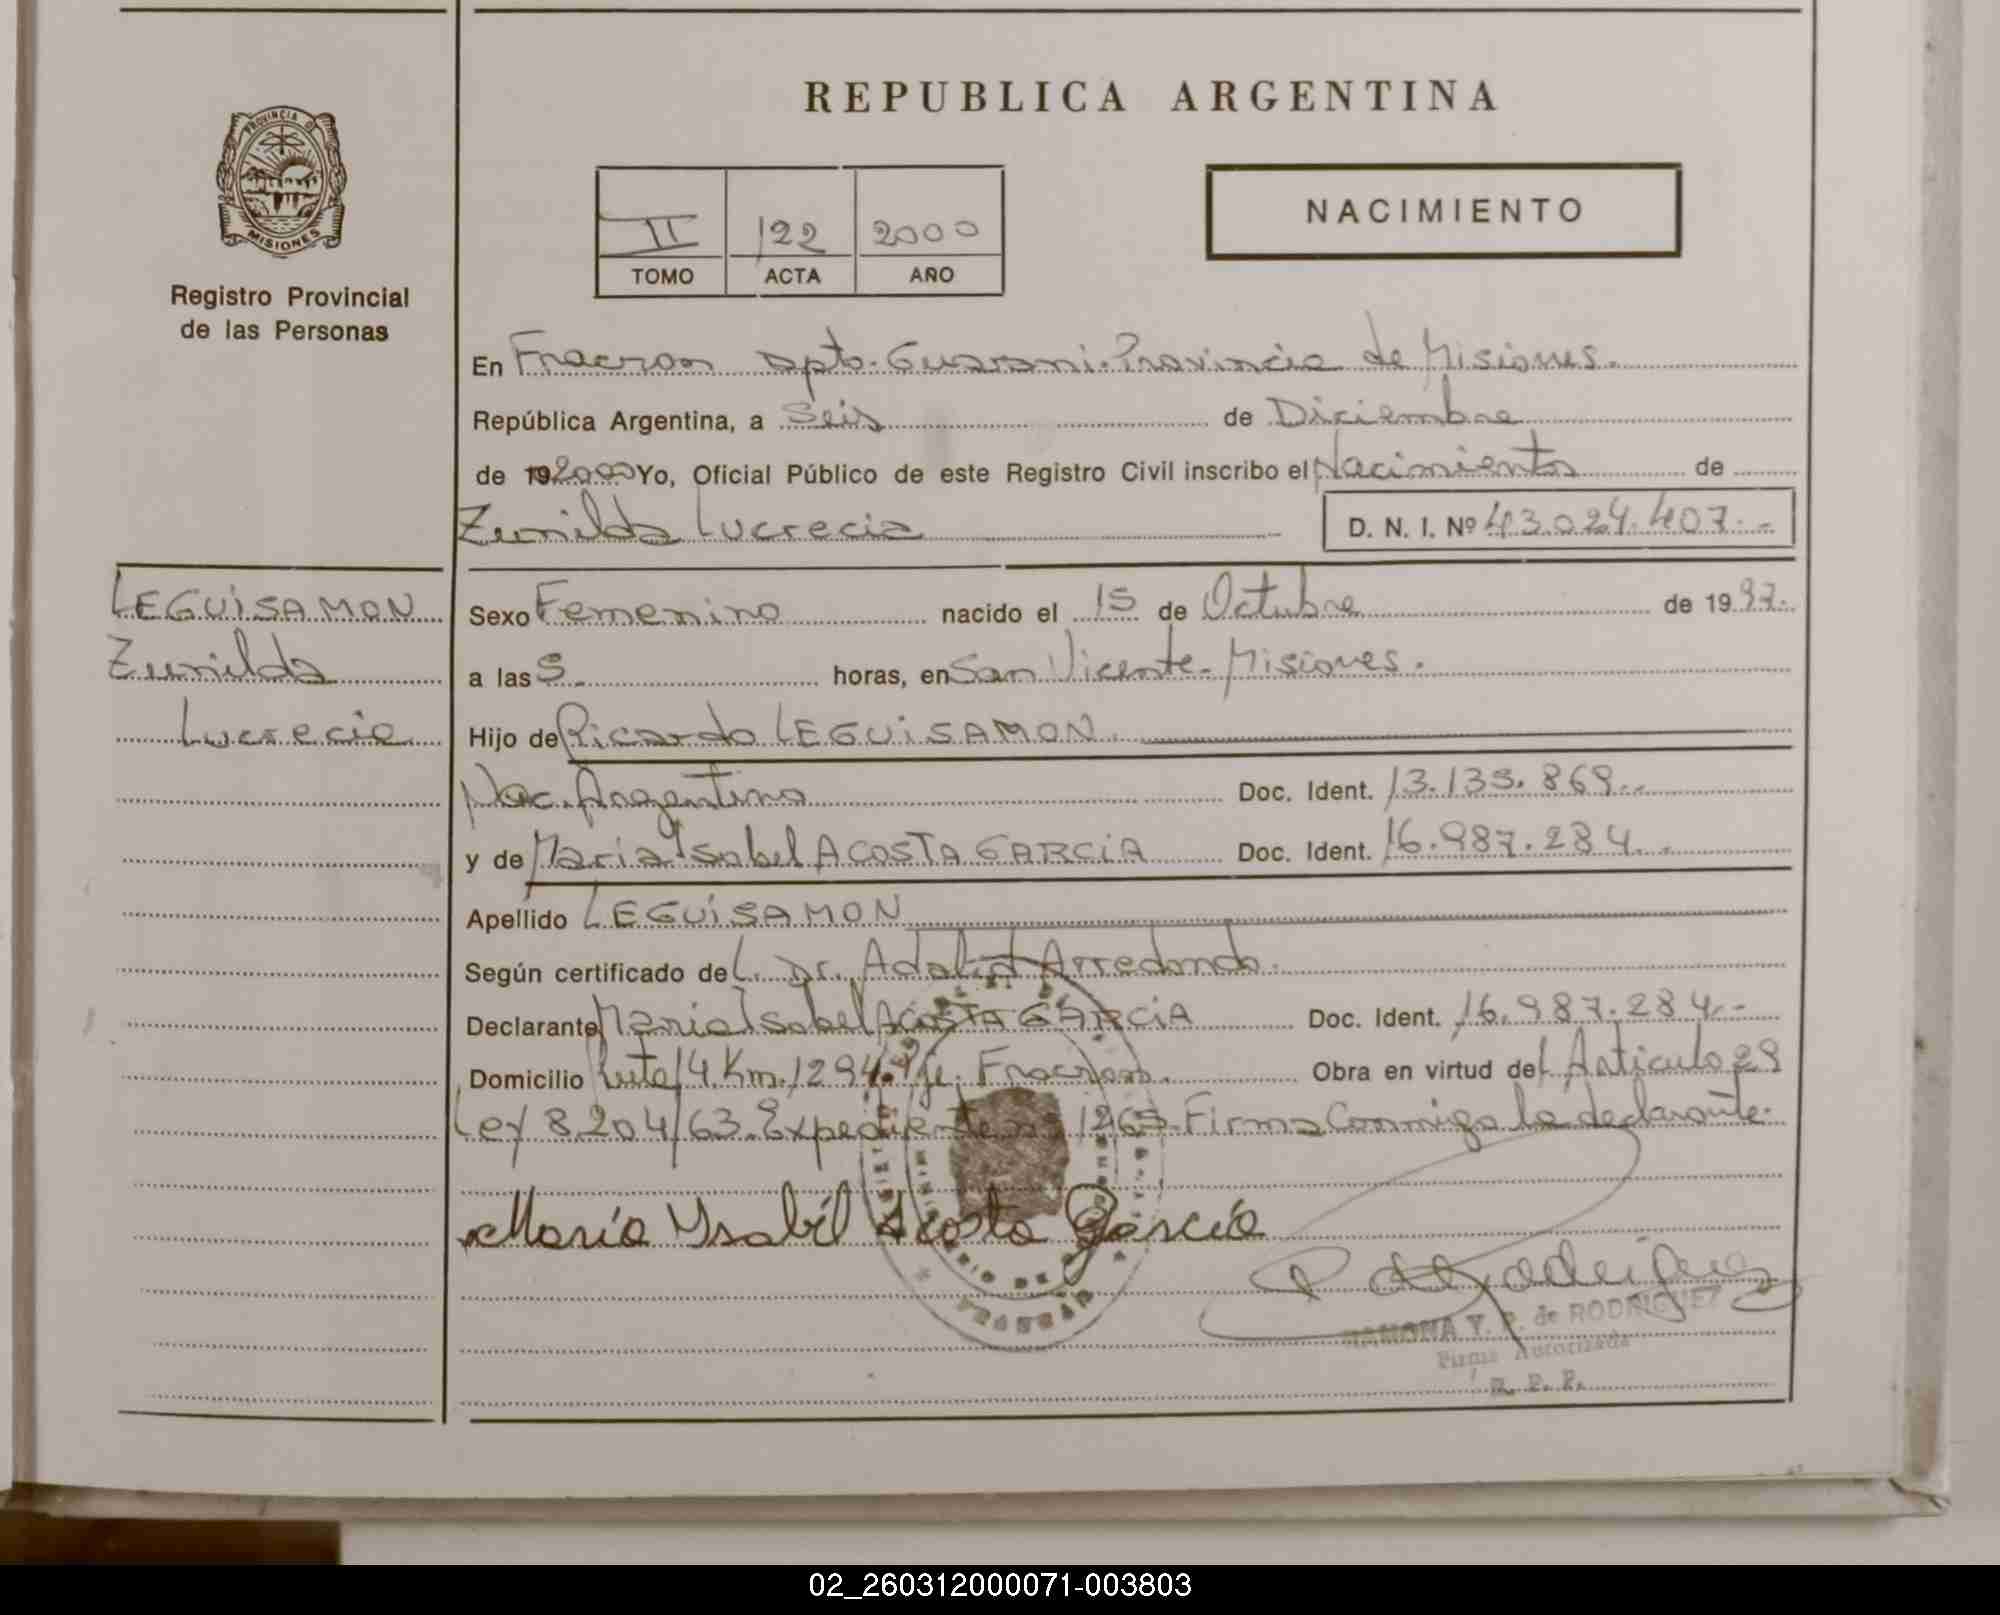 REPUBLICA ARGENTINA
PROVINCIA D
MISIONES
Registro Provincial
de las Personas
II 122 2000
TOMO ACTA AÑO
NACIMIENTO
En Fracran Dpto. Guarani. Provincia de Misiones.
República Argentina, a Seis de Diciembre
de 19 2000 Yo, Oficial Público de este Registro Civil inscribo el Nacimiento de
Zunilda Lucrecia D. N. I. Nº 43.024.407.-
LEGUISAMON
Zunilda
Lucrecia
Sexo Femenino nacido el 15 de Octubre de 1997.
a las 5. horas, en San Vicente. Misiones.
Hijo de Ricardo LEGUISAMON.
Nac. Argentino Doc. Ident. 13.135.869.-
y de Maria Isabel ACOSTA GARCIA Doc. Ident. 16.987.284.-
Apellido LEGUISAMON
Según certificado de L. Dr. Adolid Arredondo.
Declarante Maria Isabel ACOSTA GARCIA Doc. Ident. 16.987.284.-
Domicilio Ruta 14 Km. 1294. Pje. Fracran. Obra en virtud del Articulo 29
Ley 8204/63. Expediente nº 1265. Firma Conmigo la declarante.
Maria Ysabel Acosta Garcia
RAMONA Y. P. de RODRIGUEZ
Firma Autorizada
R. P. P.
02_260312000071-003803